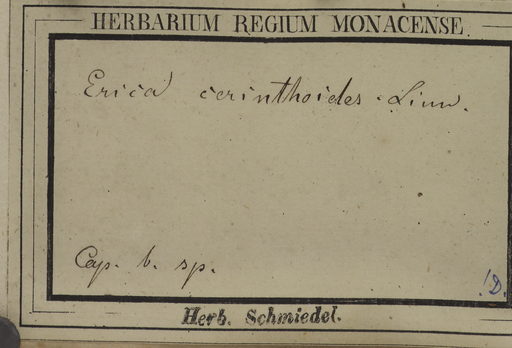 HERBARIUM REGIUM MONACENSE
Erica cerinthoides. Linn.
Cap. b. sp.
!D.
Herb. Schmiedel.